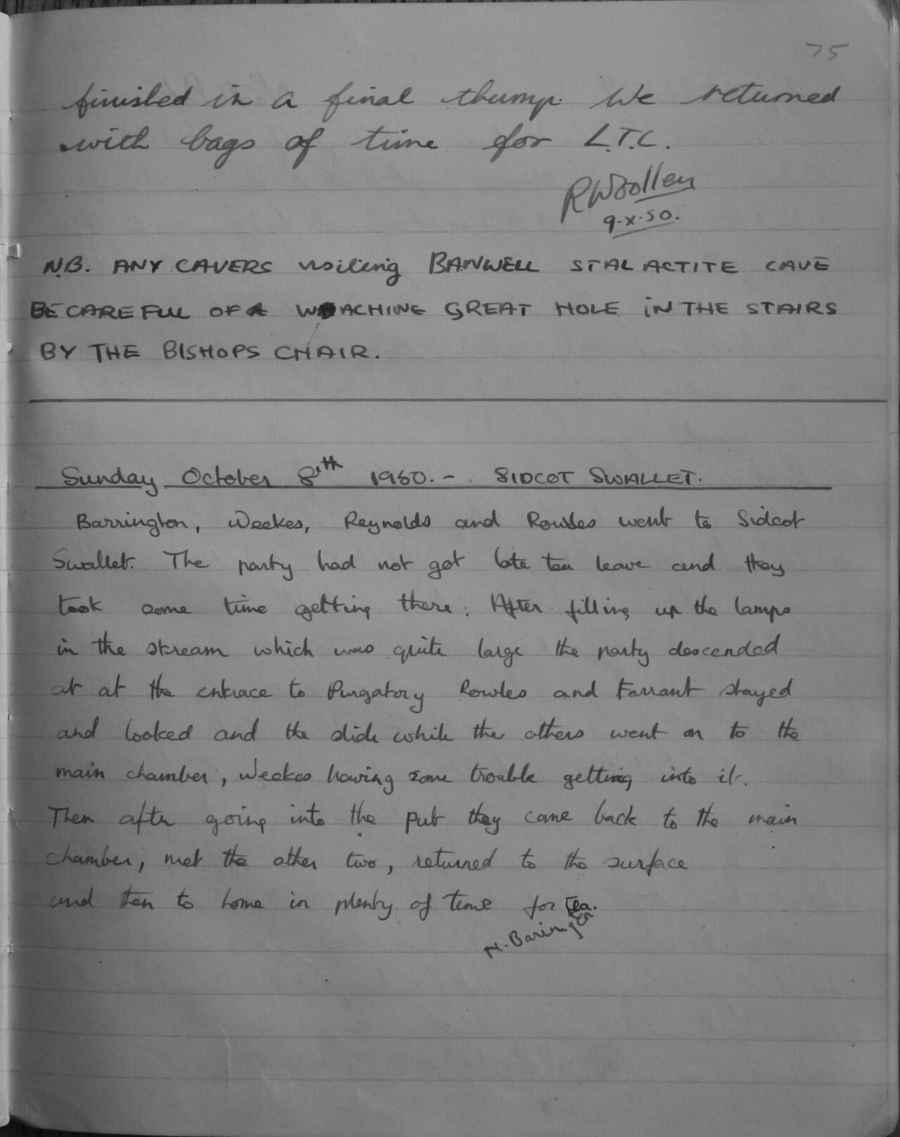 75
finished in a final thump. We returned
with bags of time for L.T.C.
RWoollen
9.X.50.
N.B. ANY CAVERS visiting BANWELL STALACTITE CAVE
BE CAREFUL OF A GREAT HOLE iN THE STAIRS
BY THE BISHOPS CHAIR.
Sunday October 8th 1950. - SIDCOT SWALLET.
Barrington, Weekes, Reynolds and Rowles went to Sidcot
Swallet. The party had not got late tea leave and they
took some time getting there. After filling up the lamps
in the stream which was quite large the party descended
at at the entrace to Purgatory Rowles and Farrant stayed
and looked and the slide while the others went on to the
main chamber, Weekes having some trouble getting into it.
Then after going into the put they came back to the main
chamber, met the other two, returned to the surface
and ten to home in plenty of time for tea.